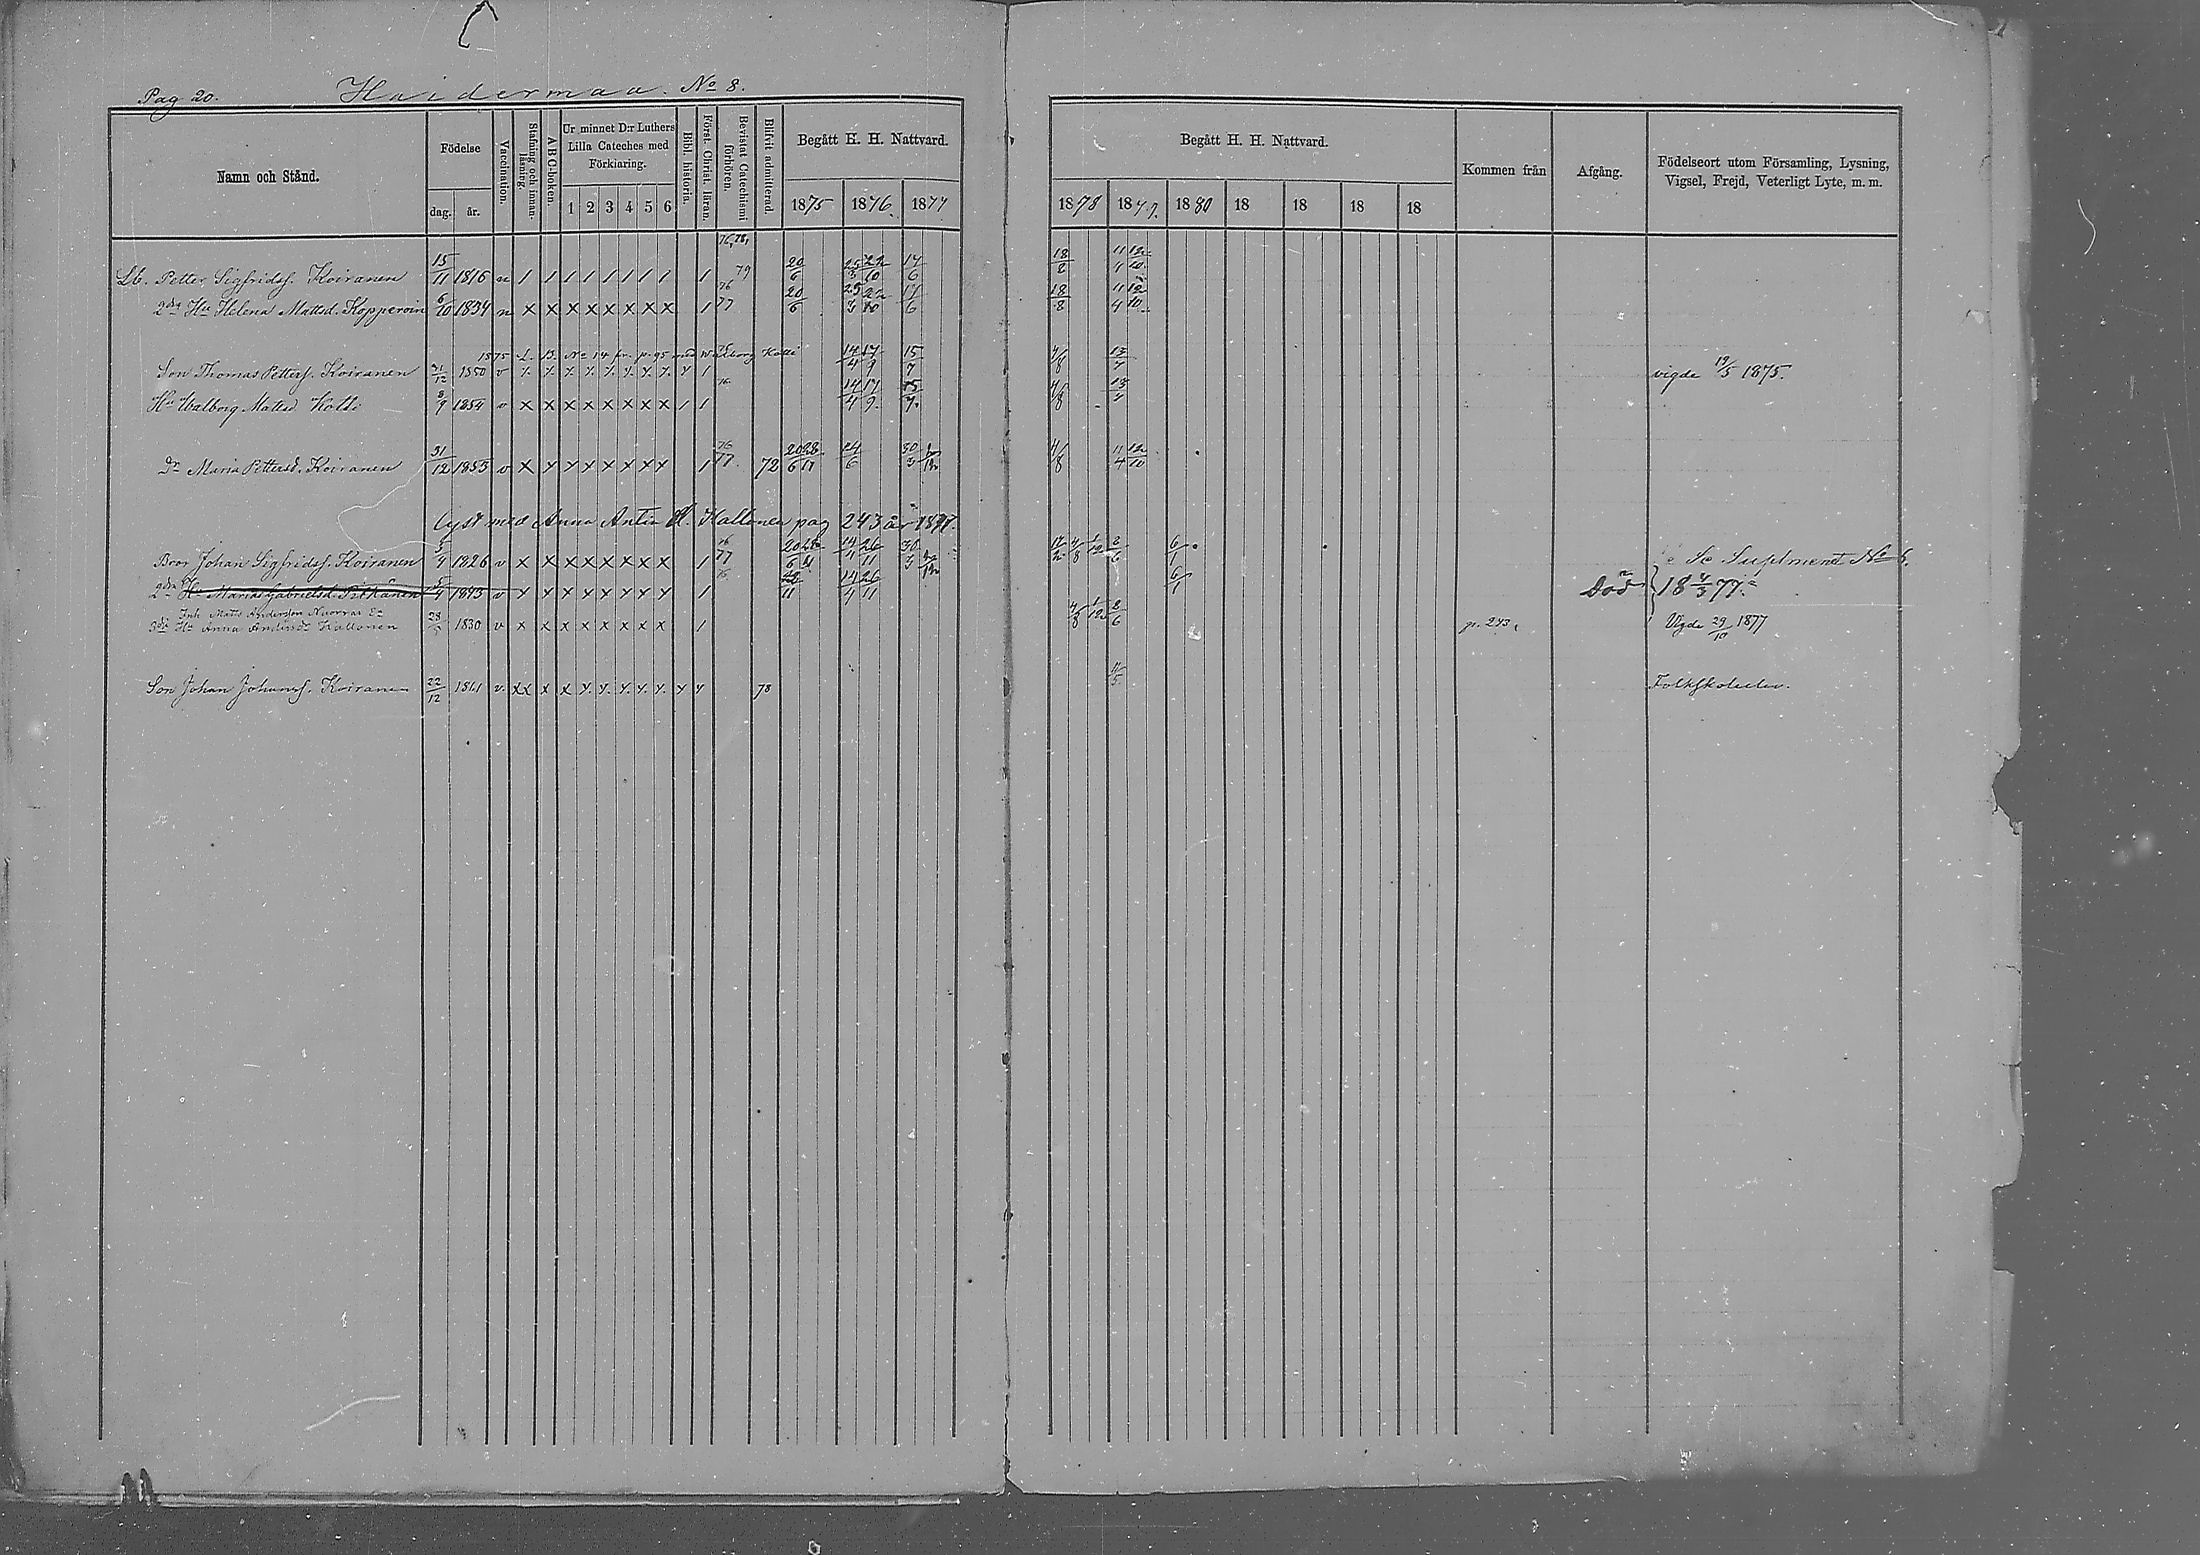 Pag 20. Haidermaa. No 8.
Namn och Stånd. Födelse Vaccination. Stafning och innan-läsning. ABC-boken. Ur minnet D:r Luthers Lilla Cateches med Förklaring. Bibl. historia. Först. Christ. läran. Bevistat Catechismi förhören. Blifvit admitterad. Begått H. H. Nattvard. Begått H. H. Nattvard. Kommen från Afgång. Födelseort utom Församling, Lysning, Vigsel, Frejd, Veterligt Lyte, m. m.
dag. år. 1 2 3 4 5 6 1875 1876. 1877 1878 1879. 1880 18 18 18 18
76, 78,
Lb. Petter Sigfridsf. Koiranen 15/11 1816 n 1 1 1 1 1 1 1 1 1 79 20/6 25/3 22/10 17/6 18/8 11/4 12/10
2dra Hu Helena Mattsd. Kopperoin 6/10 1834 n x x x x x x x x 1 76 77 20/6 25/3 22/10 17/6 18/8 11/4 12/10
1875 L. B. No 14 fr. p. 95 med Walborg Kotti
Son Thomas Pettersf. Koiranen 21/12 1850 v x x x x x x x x x 1 14/4 17/9 15/7 4/8 13/7 vigde 19/5 1875.
Hu Walborg Mattsd Kotti 8/9 1854 v x x x x x x x x 1 1 76. 14/4 17/9 15/7 4/8 13/7
Dr Maria Pettersd. Koiranen 31/12 1853 v x x x x x x x x 1 76 77. 72 20/6 28/11 24/6 30/3 4/8 11/4 12/10
lyst med Anna Antin d. Kallonen pag 243 år 1877.
Bror Johan Sigfridsf. Koiranen 5/4 1826 v x x x x x x x x 1 76 77 20/6 14/11 26/11 30/3 4/8 1/12 2/6 6/1 Se Suplment No 6.
2dra Hu Maria Gabrielsd. Pitkänen 5/4 1843 v x x x x x x x x 1 28/11 14/4 26/11 6/1 Död 18 4/3 77.
Inh. Matts Andersson Nuorras E:a
3dje Hu Anna Andersd. Kallonen 28 1830 v x x x x x x x x 1 4/8 1/12 2/6 p. 243. Vigde 29/10 1877
Son Johan Johansf. Koiranen 22/12 1861 v. x x x x x x x x x x 78 11/5 Folkskolelev.